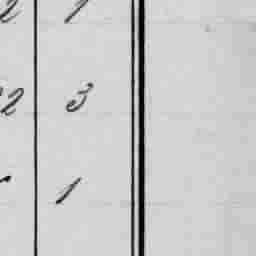 2 1
2 3
1